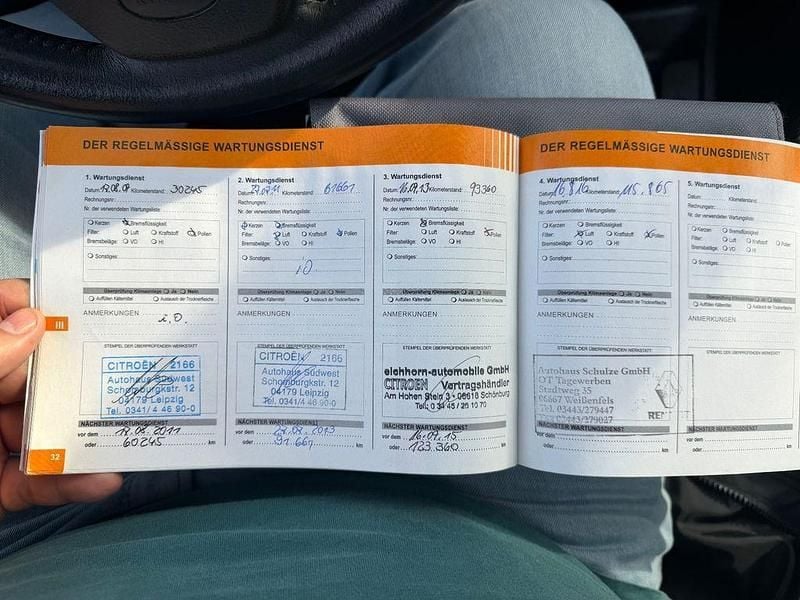 DER REGELMÄSSIGE WARTUNGSDIENST
1. Wartungsdienst
Datum: Kilometerstand: 30245
Rechnungsnr.:
Nr. der verwendeten Wartungsliste:
Kerzen Bremsflüssigkeit
Filter: Luft Kraftstoff Pollen
Bremsbeläge: VO HI
Sonstiges:
Überprüfung Klimaanlage: Ja Nein
Auffüllen Kältemittel Austausch der Trocknerflasche
ANMERKUNGEN i.O.
STEMPEL DER ÜBERPRÜFENDEN WERKSTATT
CITROËN 2166
Autohaus Südwest
Schomburgkstr. 12
04179 Leipzig
Tel. 0341/4 46 90-0
NÄCHSTER WARTUNGSDIENST
vor dem 17.08.2011
oder 60245 km
32
III
2. Wartungsdienst
Datum: Kilometerstand: 61661
Rechnungsnr.:
Nr. der verwendeten Wartungsliste:
Kerzen Bremsflüssigkeit
Filter: Luft Kraftstoff Pollen
Bremsbeläge: VO HI
Sonstiges:
i.O.
Überprüfung Klimaanlage: Ja Nein
Auffüllen Kältemittel Austausch der Trocknerflasche
ANMERKUNGEN
STEMPEL DER ÜBERPRÜFENDEN WERKSTATT
CITROËN 2166
Autohaus Südwest
Schomburgkstr. 12
04179 Leipzig
Tel. 0341/4 46 90-0
NÄCHSTER WARTUNGSDIENST
vor dem 2013
oder 91.661 km
3. Wartungsdienst
Datum: 16.09.13 Kilometerstand: 93360
Rechnungsnr.:
Nr. der verwendeten Wartungsliste:
Kerzen Bremsflüssigkeit
Filter: Luft Kraftstoff Pollen
Bremsbeläge: VO HI
Sonstiges:
Überprüfung Klimaanlage: Ja Nein
Auffüllen Kältemittel Austausch der Trocknerflasche
ANMERKUNGEN
STEMPEL DER ÜBERPRÜFENDEN WERKSTATT
eichhorn-automobile GmbH
CITROËN Vertragshändler
Am Hohen Stein 3 · 06618 Schönburg
Tel.: 0 34 45 / 26 10 70
NÄCHSTER WARTUNGSDIENST
vor dem 16.09.15
oder 123.360 km
DER REGELMÄSSIGE WARTUNGSDIENST
4. Wartungsdienst
Datum: 16.8.16 Kilometerstand: 115.865
Rechnungsnr.:
Nr. der verwendeten Wartungsliste:
Kerzen Bremsflüssigkeit
Filter: Luft Kraftstoff Pollen
Bremsbeläge: VO HI
Sonstiges:
Überprüfung Klimaanlage: Ja Nein
Auffüllen Kältemittel Austausch der Trocknerflasche
ANMERKUNGEN
STEMPEL DER ÜBERPRÜFENDEN WERKSTATT
Autohaus Schulze GmbH
OT Tagewerben
Stadtweg 35
06667 Weißenfels
Tel. 03443/279447
03443/279027
REN
NÄCHSTER WARTUNGSDIENST
vor dem
oder km
5. Wartungsdienst
Datum: Kilometerstand:
Rechnungsnr.:
Nr. der verwendeten Wartungsliste:
Kerzen Bremsflüssigkeit
Filter: Luft Kraftstoff Pollen
Bremsbeläge: VO HI
Sonstiges:
Überprüfung Klimaanlage: Ja Nein
Auffüllen Kältemittel Austausch der Trocknerflasche
ANMERKUNGEN
STEMPEL DER ÜBERPRÜFENDEN WERKSTATT
NÄCHSTER WARTUNGSDIENST
vor dem
oder km